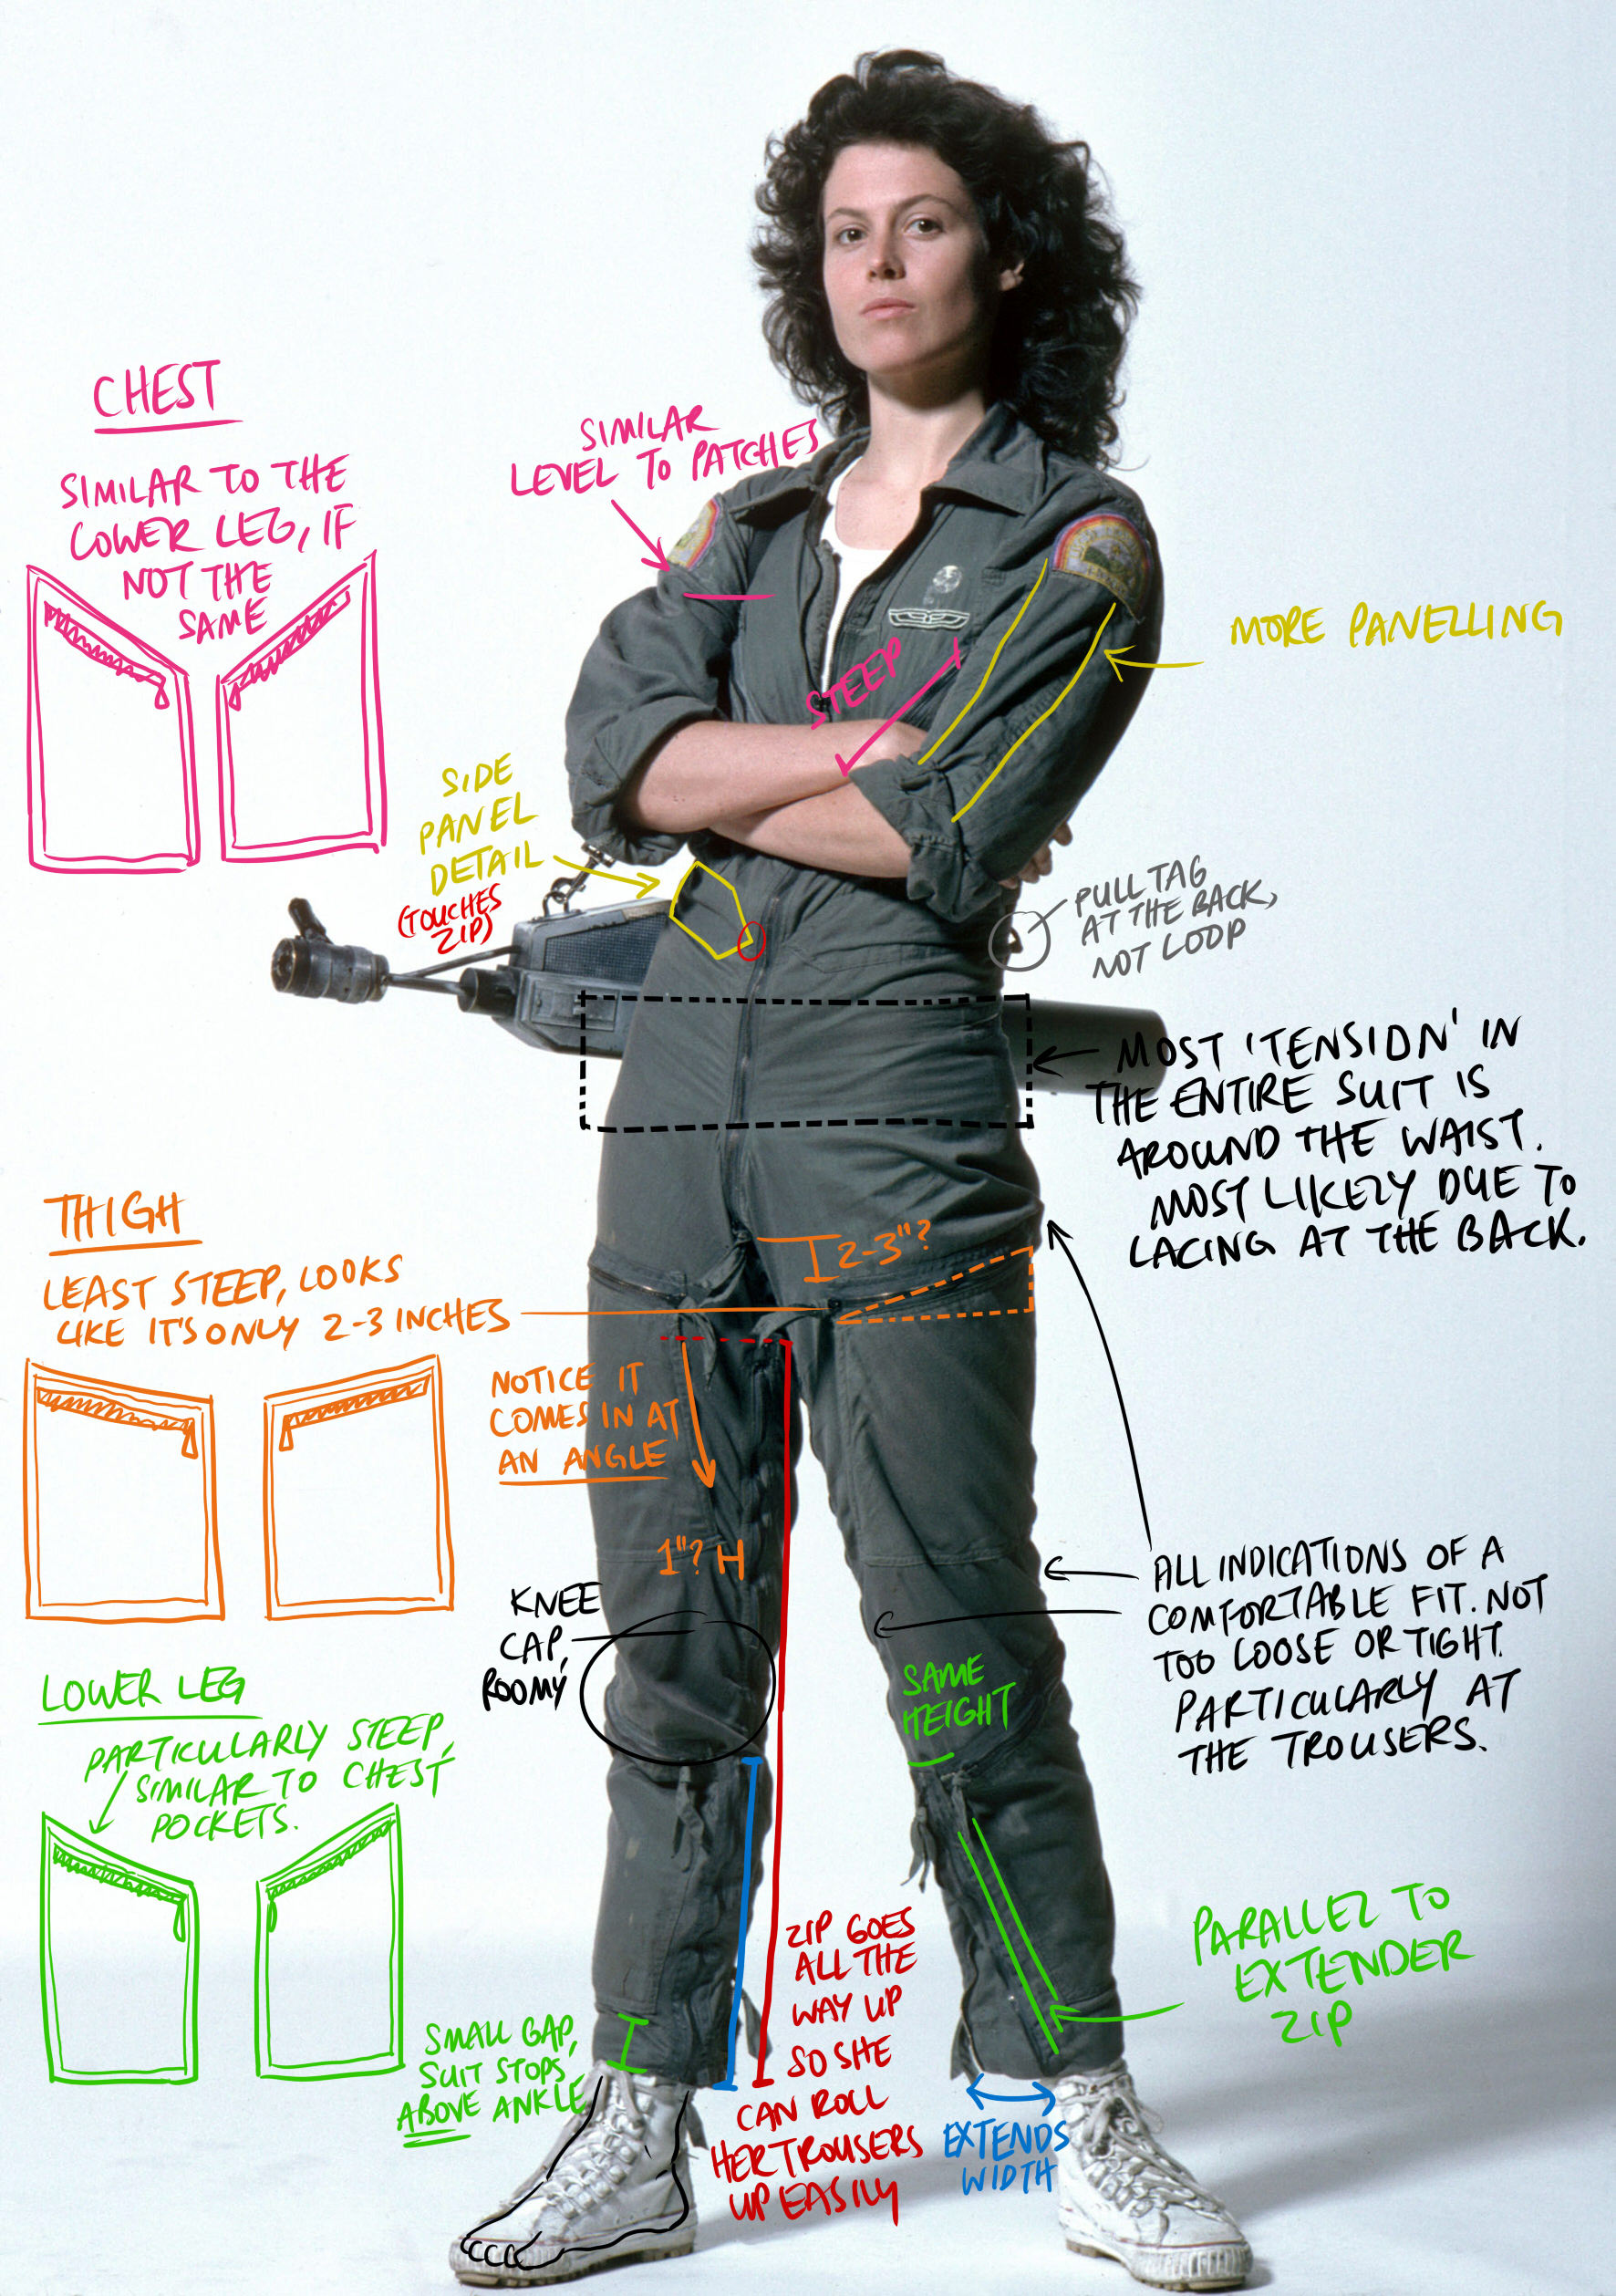 CHEST
SIMILAR TO THE
LOWER LEG, IF
NOT THE
SAME
SIMILAR
LEVEL TO PATCHES
STEEP
MORE PANELLING
SIDE
PANEL
DETAIL
(TOUCHES
ZIP)
PULL TAG
AT THE BACK,
NOT LOOP
MOST 'TENSION' IN
THE ENTIRE SUIT IS
AROUND THE WAIST.
MOST LIKELY DUE TO
LACING AT THE BACK.
THIGH
LEAST STEEP, LOOKS
LIKE IT'S ONLY 2-3 INCHES
2-3"?
NOTICE IT
COMES IN AT
AN ANGLE
1"?
KNEE
CAP,
ROOMY
ALL INDICATIONS OF A
COMFORTABLE FIT. NOT
TOO LOOSE OR TIGHT.
PARTICULARLY AT
THE TROUSERS.
LOWER LEG
PARTICULARLY STEEP,
SIMILAR TO CHEST
POCKETS.
SAME
HEIGHT
PARALLEL TO
EXTENDER
ZIP
ZIP GOES
ALL THE
WAY UP
SO SHE
CAN ROLL
HER TROUSERS
UP EASILY
SMALL GAP,
SUIT STOPS
ABOVE ANKLE
EXTENDS
WIDTH